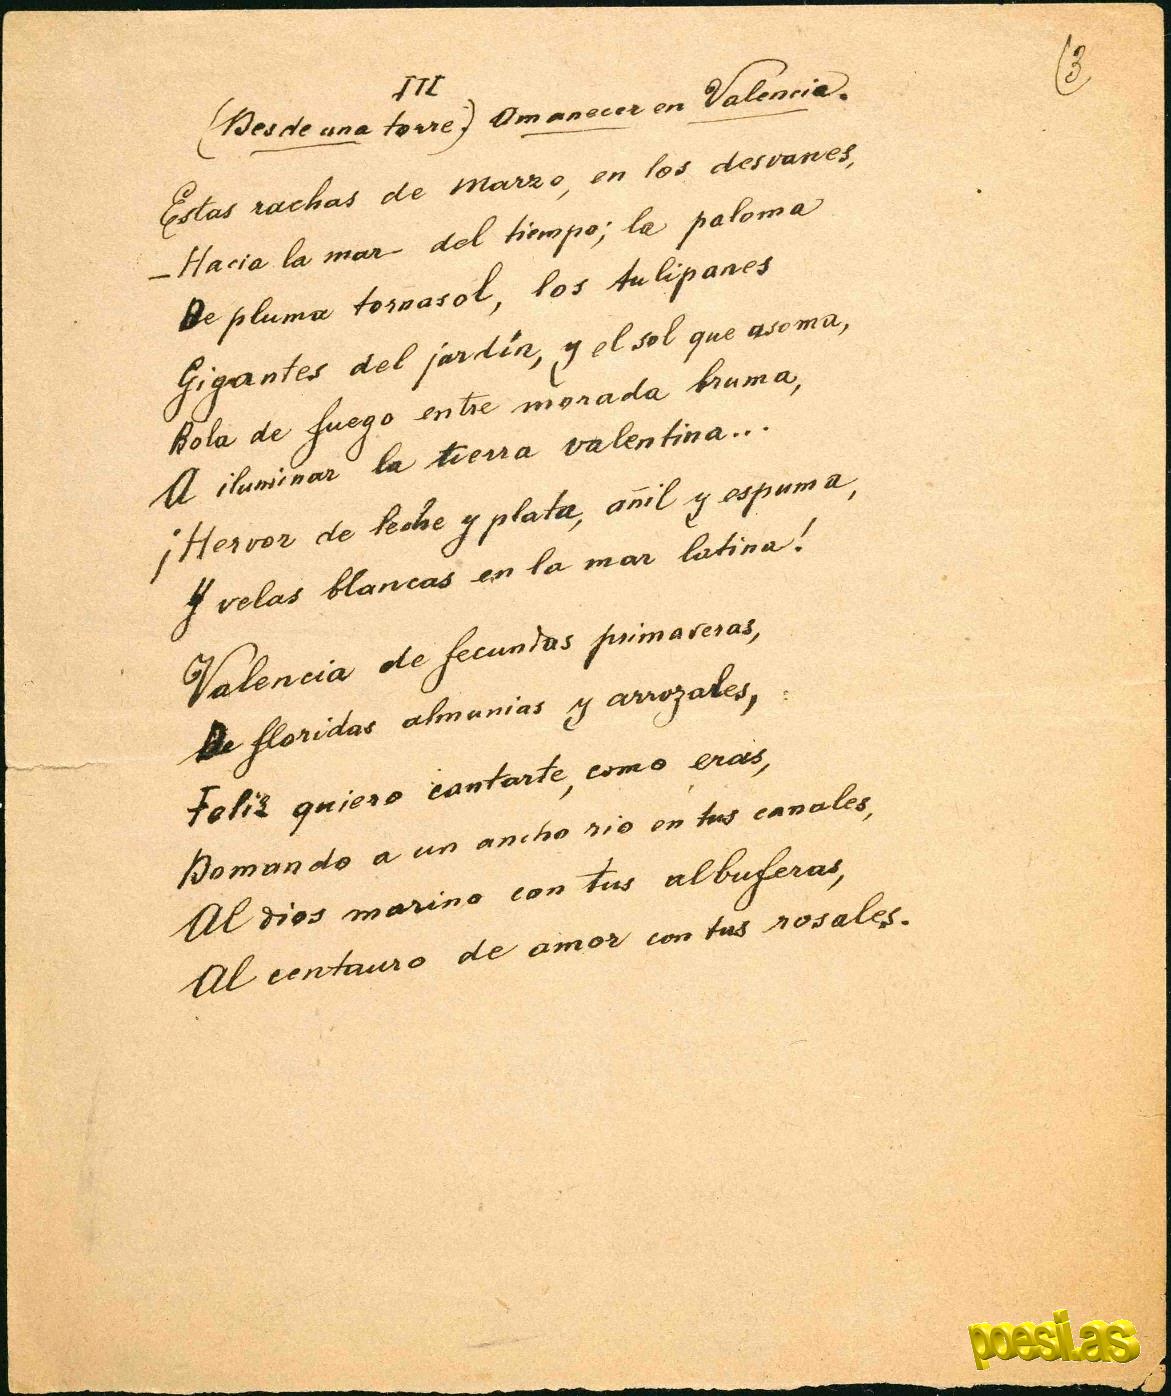 (3
III
(Desde una torre) Amanecer en Valencia.
Estas rachas de marzo, en los desvanes,
— Hacia la mar — del tiempo; la paloma
De pluma tornasol, los tulipanes
Gigantes del jardín, y el sol que asoma,
Bola de fuego entre morada bruma,
A iluminar la tierra valentina...
¡Hervor de leche y plata, añil y espuma,
Y velas blancas en la mar latina!
Valencia de fecundas primaveras,
De floridas almunias y arrozales,
Feliz quiero cantarte, como eras,
Domando a un ancho rio en tus canales,
Al dios marino con tus albuferas,
Al centauro de amor con tus rosales.
poesi.as